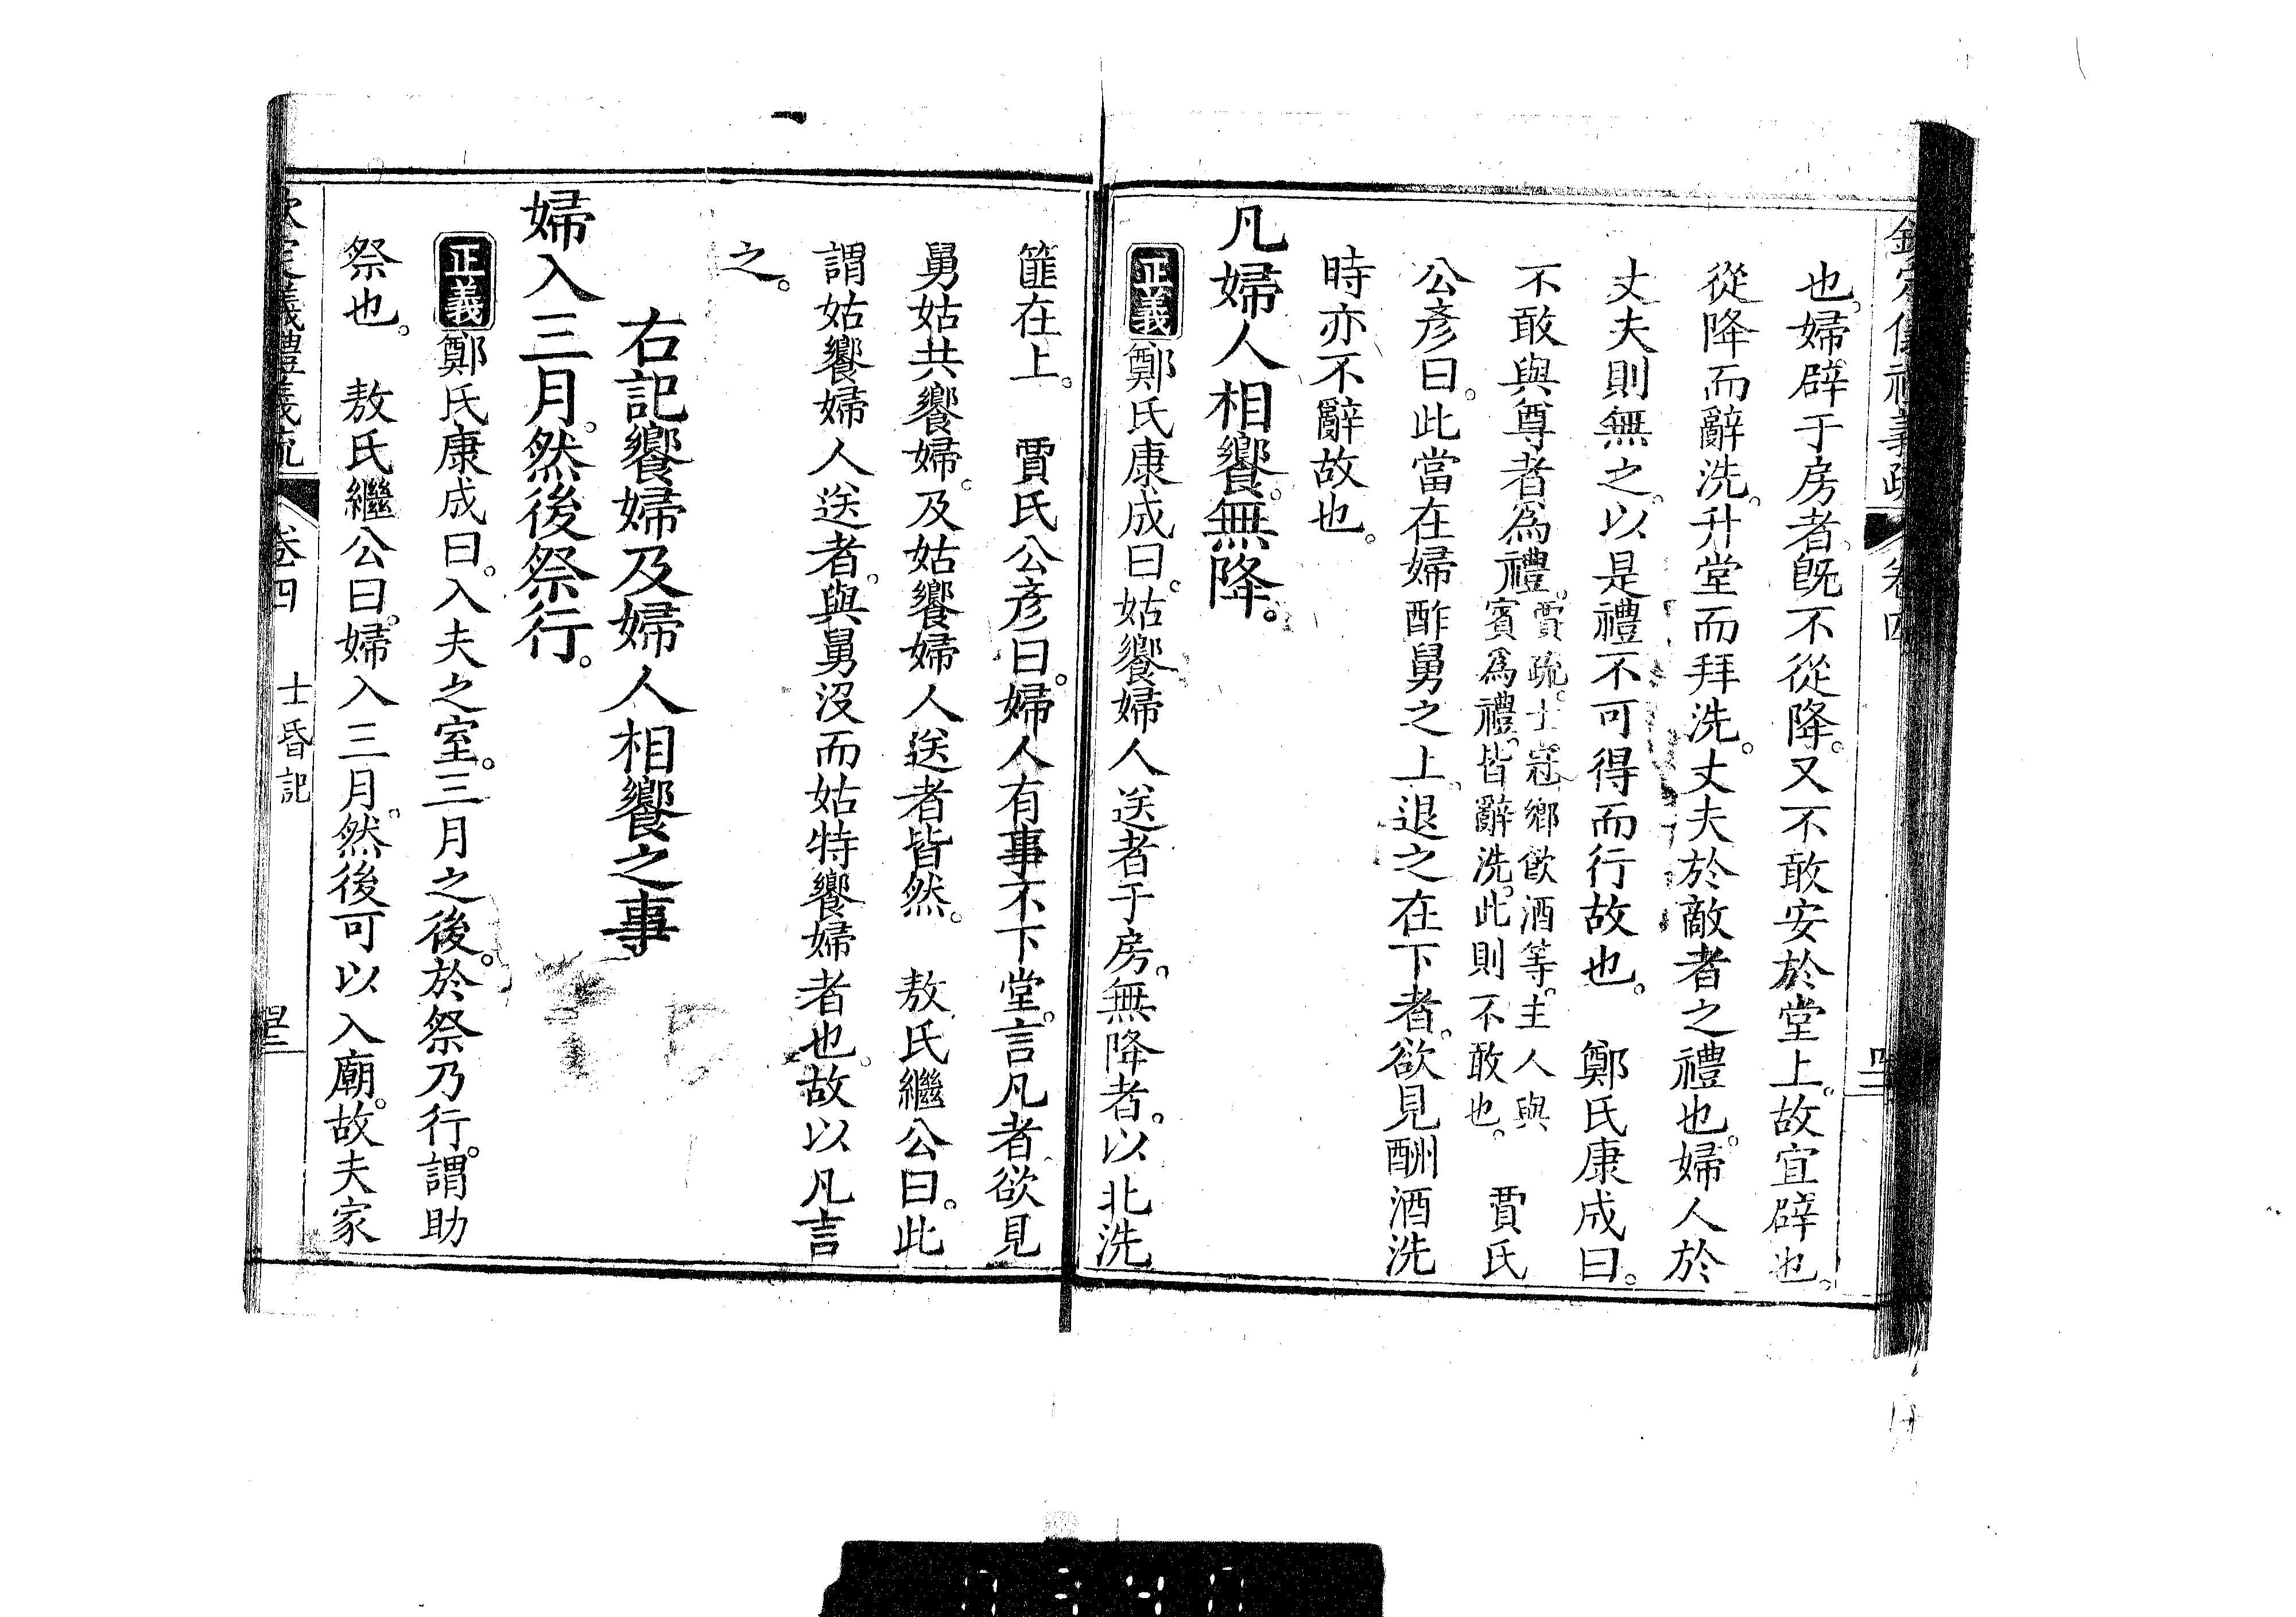 也。婦辟于房者。旣不從降。又不敢安於堂上。故宜辟也。
從降而辭洗。升堂而拜洗。丈夫於敵者之禮也。婦人於
丈夫則無之。以是禮不可得而行故也。　鄭氏康成曰。
不敢與尊者爲禮。賈疏。士冠鄉飮酒等。主人與賓爲禮。皆辭洗。此則不敢也。　賈氏
公彥曰。此當在婦酢舅之上。退之在下者。欲見酬酒洗
時亦不辭故也。
凡婦人相饗。無降。
正義 鄭氏康成曰。姑饗婦人送者于房。無降者。以北洗
篚在上。　賈氏公彥曰。婦人有事不下堂。言凡者。欲見
舅姑共饗婦。及姑饗婦人送者皆然。　敖氏繼公曰。此
謂姑饗婦人送者。與舅沒而姑特饗婦者也。故以凡言
之。
右記饗婦及婦人相饗之事
婦入三月。然後祭行。
正義 鄭氏康成曰。入夫之室。三月之後。於祭乃行。謂助
祭也。　敖氏繼公曰。婦入三月。然後可以入廟。故夫家
卷四　士昏記